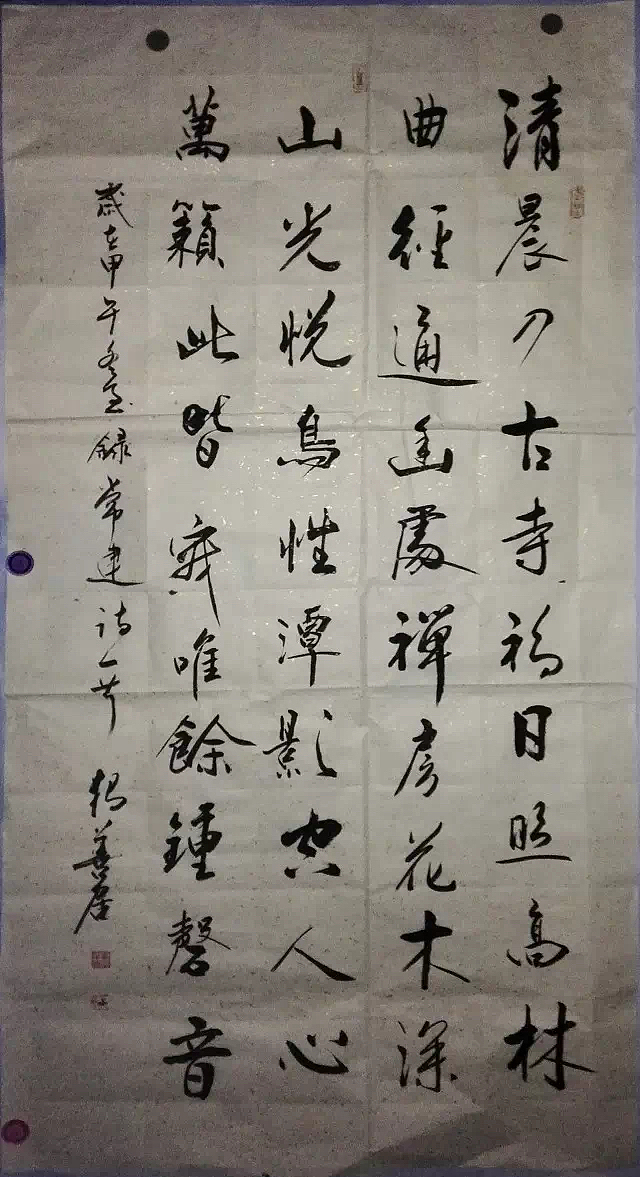 清晨入古寺初日照高林
曲徑通幽處禪房花木深
山光悅鳥性潭影空人心
萬籟此皆寂唯餘鍾磬音
歲在甲午冬至錄常建詩一首 楊善居